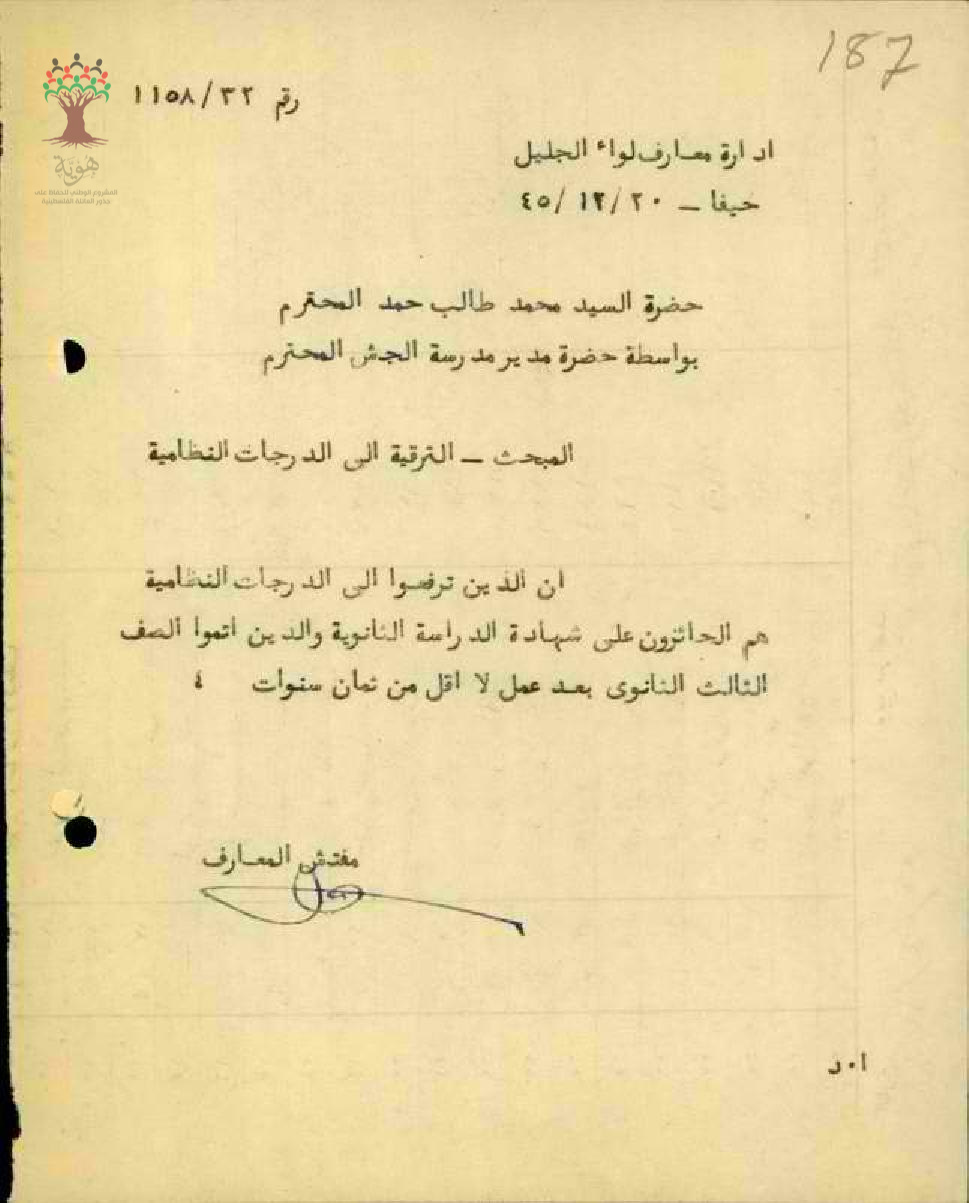 187
رقم ١١٥٨/٣٢
ادارة معارف لواء الجليل
حيفا – ٢٠/١٢/٤٥
حضرة السيد محمد طالب حمد المحترم
بواسطة حضرة مدير مدرسة الجش المحترم
المبحث – الترقية الى الدرجات النظامية
ان الذين ترفعوا الى الدرجات النظامية
هم الحائزون على شهادة الدراسة الثانوية والذين اتموا الصف
الثالث الثانوى بعد عمل لا اقل من ثمان سنوات ؛
مفتش المعارف
ا٠د
هوية
المشروع الوطني للحفاظ على
جذور العائلة الفلسطينية